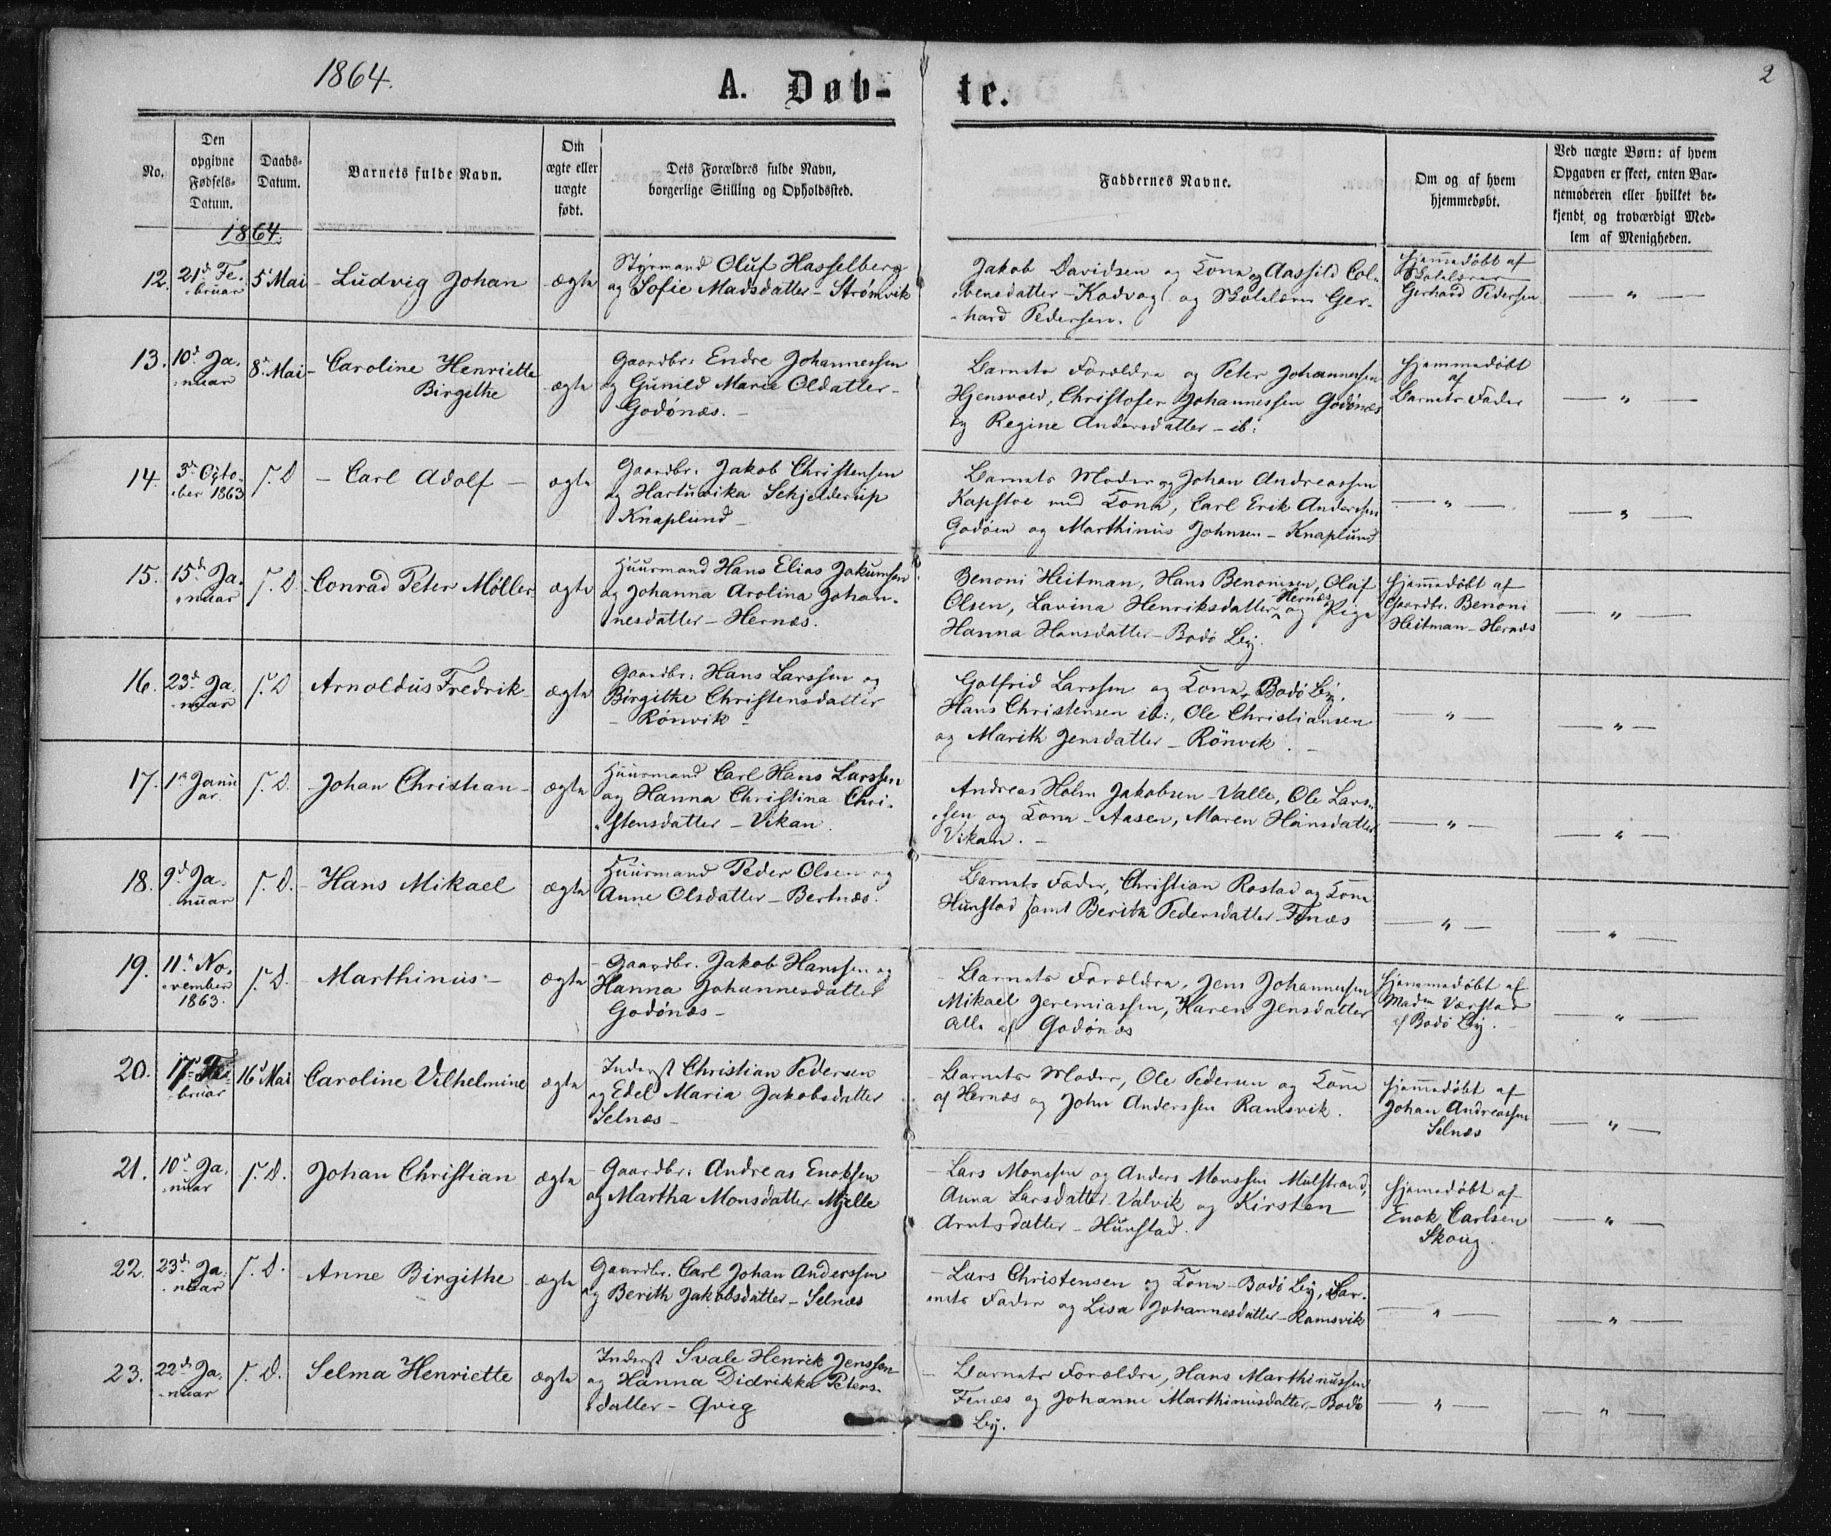 1864.
A. Døb-
te.
2
No.
Den opgivne Fødsels-Datum.
Daabs-Datum.
Barnets fulde Navn.
Om ægte eller uægte født.
Dets Forældres fulde Navn, borgerlige Stilling og Opholdssted.
Faddernes Navne.
Om og af hvem hjemmedøbt.
Ved uægte Børn: af hvem Opgaven er skeet, enten Barnemoderen eller hvilket bekjendt og troværdigt Medlem af Menigheden.
1864.
12. 21d Fe-
bruar
5' Mai
Ludvig Johan
ægte
Styrmand Oluf Hasselberg
og Sofie Madsdatter - Strømvik
Jakob Davidsen og Kona og Aassild Col-
bensdatter - Kodvag og Skolelærer Ger-
hard Pedersen.
Hjemmedøbt af
Skolelærer
Gerhard Pedersen
— " —
13. 10d Ja-
nuar
8' Mai
Caroline Henriette
Birgithe
ægte
Gaardbr. Endre Johannessen
og Gunild Marie Oldatter -
Godønæs. -
Barnets Forældre og Peter Johannessen
Hjensvold, Christofer Johannessen Godønæs
og Regine Andersdatter - ib:
Hjemmedøbt
af
Barnets Fader
— " —
14. 3d Octo-
ber 1863
s. D
- Carl Adolf -
ægte
Gaardbr. Jakob Christensen
og Hartuvika Schjelderup
Knaplund -
Barnets Moder og Johan Andreassen
Kapstoe med Kona, Carl Erik Anderssen
Godøen og Marthinus Johnsen - Knaplund
— " —
— " —
15. 15d Ja-
nuar
s. D
Conrad Peter Møller
ægte
Huusmand Hans Elias Jakumsen
og Johanna Arolina Johan-
nesdatter - Hernæs.
Benoni Heitman, Hans Benonisen, Oluf
Olsen, Lavina Henriksdatter Hernæs og Pige
Hanna Hansdatter - Bodø By.
Hjemmedøbt af
Gaardbr. Benoni
Heitman - Hernæs
— " —
16. 23d Ja-
nuar
s. D
Arnoldus Fredrik
ægte
Gaardbr. Hans Larssen og
Birgithe Christensdatter
- Rønvik -
Gotfrid Larssen og Kona - Bodø By,
Hans Christensen ib:, Ole Christiansen
og Marith Jensdatter - Rønvik. -
— " —
— " —
17. 1d Janu-
ar.
s. D.
Johan Christian
ægte
Huusmand Carl Hans Larssen
og Hanna Christina Chri-
stensdatter - Vikan.
Andreas Holm Jakobsen - Valle, Ole Lars-
sen og Kona - Aasen, Maren Hansdatter
Vikan. -
— " —
— " —
18. 9d Ja-
nuar
s. D.
Hans Mikael
ægte
Huusmand Peder Olsen og
Anne Olsdatter - Bertnæs.
Barnets Fader, Christian Rostad og Kona
Hunstad samt Berith Pedersdatter - Fenæs
— " —
— " —
19. 11d No-
vember
1863.
s. D.
Marthinus
ægte
Gaardbr. Jakob Hanssen og
Hanna Johannesdatter
Godønæs -
Barnets Forældre, Jens Johannessen
Mikael Jeremiassen, Karen Jensdatter
Alle af Godønæs
Hjemmedøbt af
Madm Værstad
af Bodø By.
— " —
20. 17d Fe-
bruar
16' Mai
Caroline Vilhelmine
ægte
Inderst Christian Pedersen
og Edel Maria Jakobsdatter
Selnæs -
Barnets Moder, Ole Pedersen og Kona
af Hernæs og John Anderssen Ramsvik.
Hjemmedøbt af
Johan Andreassen
Selnæs
— " —
21. 10d Ja-
nuar
s. D.
Johan Christian
ægte
Gaardbr. Andreas Enoksen
og Martha Monsdatter Mjelle
Lars Monssen og Anders Monssen Mulstrand,
Anna Larsdatter Valvik og Kirsten
Arntsdatter - Hunstad.
Hjemmedøbt af
Enok Carlsen
Skoug.
— " —
22. 23d Ja-
nuar
s. D.
Anne Birgithe
ægte
Gaardbr. Carl Johan Anderssen
og Berith Jakobsdatter - Selnæs
Lars Christensen og Kona - Bodø By, Bar-
nets Fader og Lisa Johannesdatter - Ramsvik
— " —
— " —
23. 22d Ja-
nuar
s. D.
Selma Henriette
ægte
Inderst Svale Henrik Jenssen
og Hanna Didrikka Peters-
datter - Qvig
Barnets Forældre, Hans Marthinussen
Fenæs og Johanne Marthinusdatter - Bodø
By.
— " —
— " —